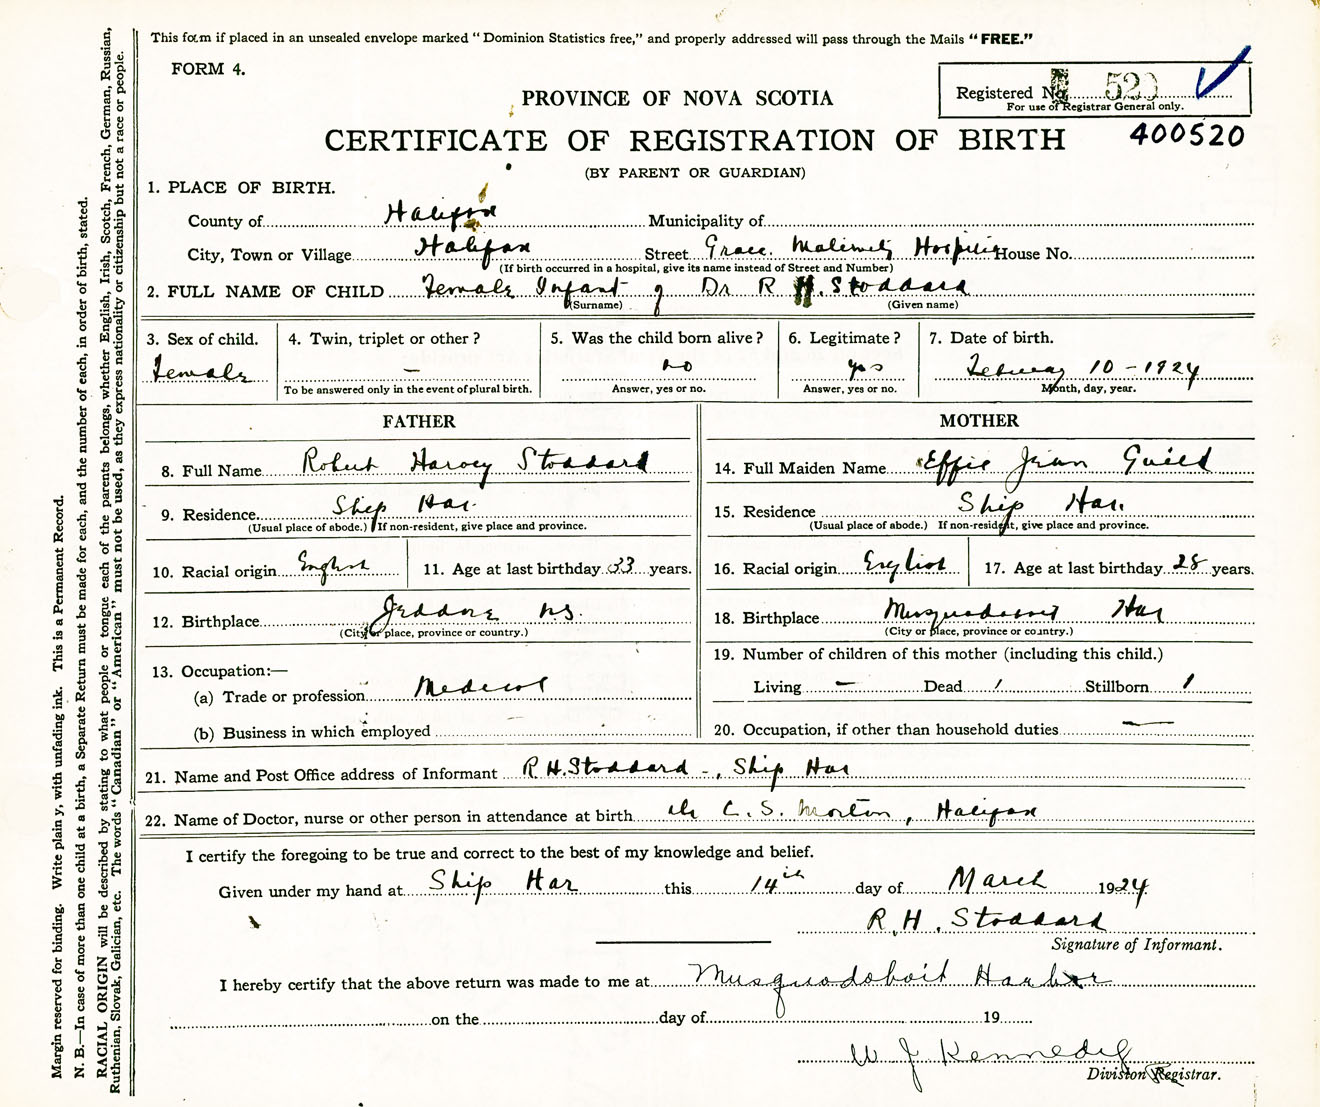 This form if placed in an unsealed envelope marked "Dominion Statistics free," and properly addressed will pass through the Mails "FREE."
FORM 4.
Registered No. 520
For use of Registrar General only.
PROVINCE OF NOVA SCOTIA
CERTIFICATE OF REGISTRATION OF BIRTH 400520
(BY PARENT OR GUARDIAN)
1. PLACE OF BIRTH.
County of Halifax Municipality of
City, Town or Village Halifax Street Grace Maternity Hospital House No.
(If birth occurred in a hospital, give its name instead of Street and Number)
2. FULL NAME OF CHILD Female Infant of Dr R H. Stoddard
(Surname) (Given name)
3. Sex of child. 4. Twin, triplet or other? 5. Was the child born alive? 6. Legitimate? 7. Date of birth.
Female — no yes February 10 - 1924
To be answered only in the event of plural birth. Answer, yes or no. Answer, yes or no. Month, day, year.
FATHER MOTHER
8. Full Name Robert Harvey Stoddard 14. Full Maiden Name Effie Jean Guild
9. Residence Ship Har. 15. Residence Ship Har.
(Usual place of abode.) If non-resident, give place and province. (Usual place of abode.) If non-resident, give place and province.
10. Racial origin English 11. Age at last birthday 33 years. 16. Racial origin English 17. Age at last birthday 28 years.
12. Birthplace Jeddore N.S. 18. Birthplace Musquodoboit Har
(City or place, province or country.) (City or place, province or country.)
13. Occupation:— 19. Number of children of this mother (including this child.)
(a) Trade or profession Medical Living — Dead 1 Stillborn 1
(b) Business in which employed — 20. Occupation, if other than household duties —
21. Name and Post Office address of Informant R H. Stoddard -, Ship Har
22. Name of Doctor, nurse or other person in attendance at birth Dr C. S. Morton, Halifax
I certify the foregoing to be true and correct to the best of my knowledge and belief.
Given under my hand at Ship Har this 14th day of March 1924
R. H. Stoddard
Signature of Informant.
I hereby certify that the above return was made to me at Musquodoboit Harbor
on the day of 19
W J Kennedy
Division Registrar.
Margin reserved for binding. Write plainly, with unfading ink. This is a Permanent Record.
N. B.—In case of more than one child at a birth, a Separate Return must be made for each, and the number of each, in order of birth, stated.
RACIAL ORIGIN will be described by stating to what people or tongue each of the parents belongs, whether English, Irish, Scotch, French, German, Russian,
Ruthenian, Slovak, Galician, etc. The words "Canadian" or "American" must not be used, as they express nationality or citizenship but not a race or people.